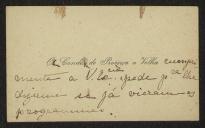 A Condessa de Proença a Velha cumpri
menta a V. Ex.cia e pede p.ra lhe
dizerem se já vieram os
programmas.